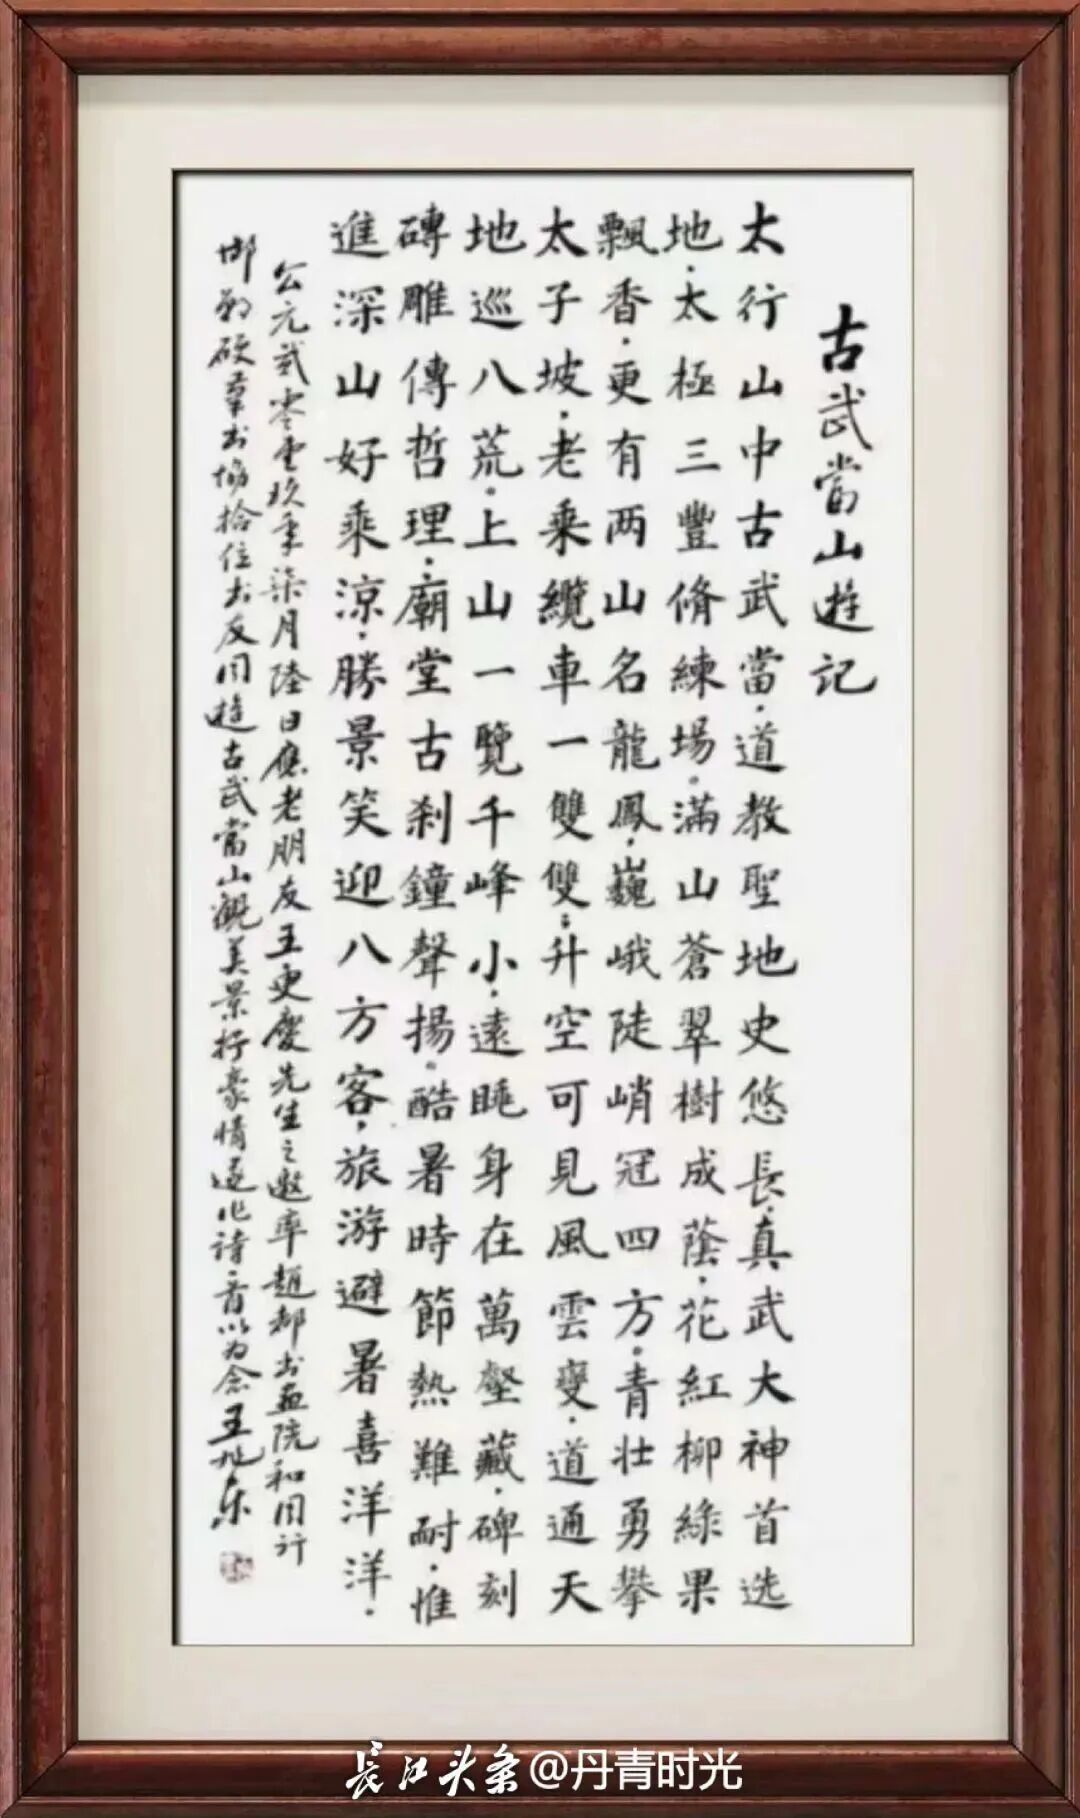 古武當山遊記
太行山中古武當．道教聖地史悠長．真武大神首选
地．太極三豐脩練場．滿山蒼翠樹成蔭．花紅柳綠果
飄香．更有两山名龍鳳．巍峨陡峭冠四方．青壮勇攀
太子坡．老乘纜車一雙雙．升空可見風雲變．道通天
地巡八荒．上山一覽千峰小．遠眺身在萬壑藏．碑刻
磚雕傳哲理．廟堂古刹鐘聲揚．酷暑時節熱難耐．惟
進深山好乘涼．勝景笑迎八方客．旅游避暑喜洋洋．
公元貳零壹玖年柒月陸日應老朋友王更慶先生之邀率趙都书画院和同行
邯郸硬筆书協拾位书友同遊古武當山觀美景抒豪情遂作詩一首以为念王旭东
長江头条@丹青时光